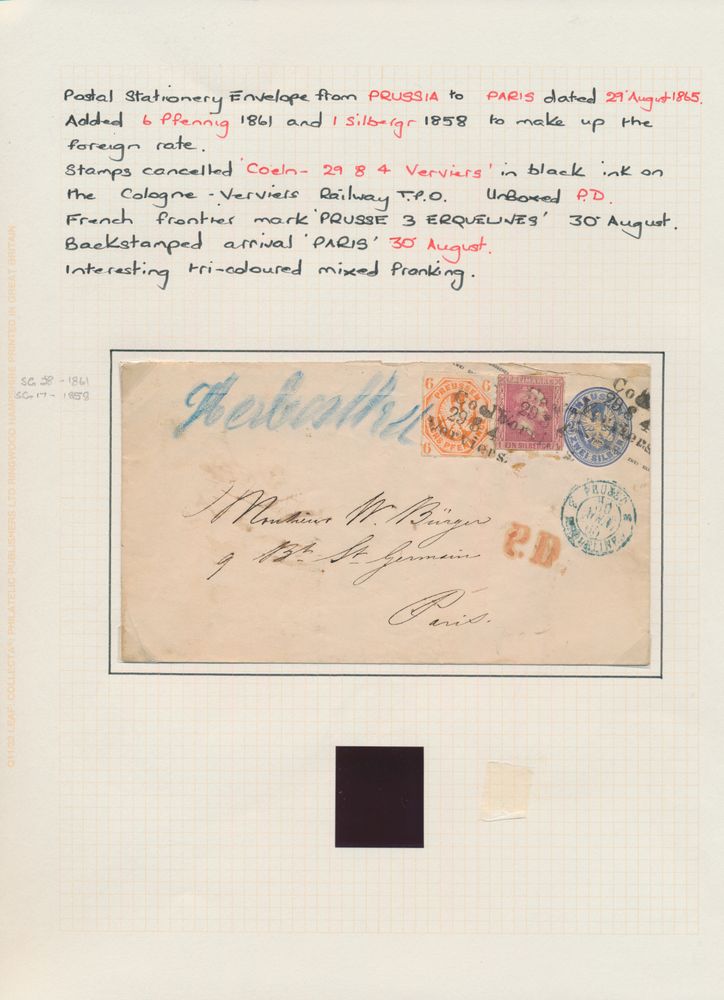 Postal Stationery Envelope from PRUSSIA to PARIS dated 29 August 1865.
Added 6 Pfennig 1861 and 1 Silbergr 1858 to make up the
foreign rate.
Stamps cancelled 'Coeln - 29 8 4 Verviers' in black ink on
the Cologne - Verviers Railway T.P.O. UnBoxed P.D.
French frontier mark 'PRUSSE 3 ERQUELINES' 30 August.
Backstamped arrival 'PARIS' 30 August.
Interesting tri-coloured mixed franking.
SG 28 - 1861
SG 17 - 1858
6 PREUSSEN 6
6
FREIMARKE
EIN SILBERGR
PREUSSEN
ZWEI SILBERGR
Coeln
29 8 4
Verviers.
29 8 4
Verviers
PRUSSE
3 3
P.D.
Monsieur W. Bürger
9 Bt. St. Germain
Paris.
Q11/32 LEAF. 'COLLECTA' PHILATELIC PUBLISHERS LTD RINGWOOD HAMPSHIRE PRINTED IN GREAT BRITAIN